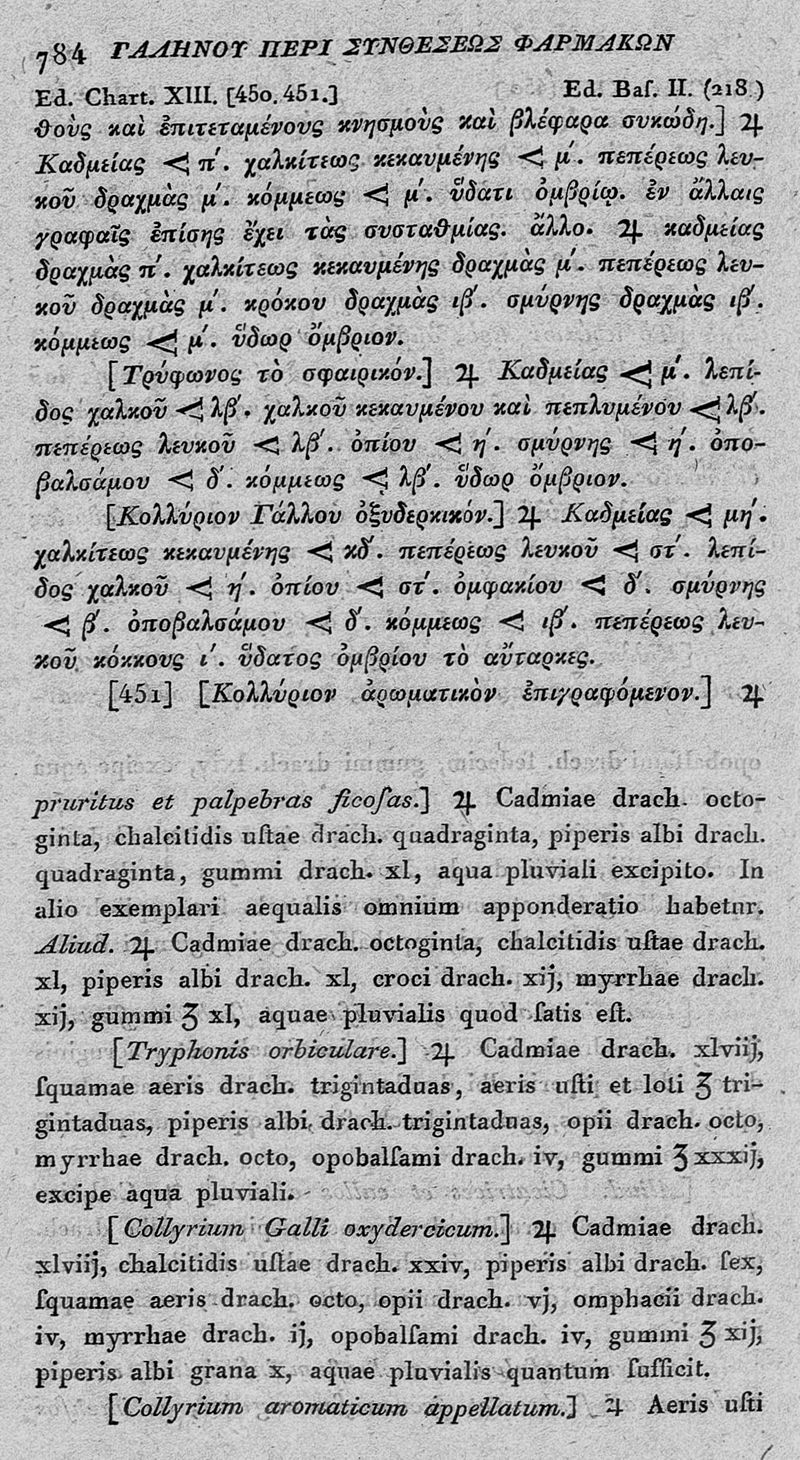 784 ΓΑΛΗΝΟΥ ΠΕΡΙ ΣΥΝΘΕΣΕΩΣ ΦΑΡΜΑΚΩΝ
Ed. Chart. XIII. [450. 451.] Ed. Baſ. II. (218.)
θους καὶ ἐπιτεταμένους κνησμοὺς καὶ βλέφαρα συκώδη.] ♃
Καδμείας ⋖ π΄. χαλκίτεως κεκαυμένης ⋖ μ΄. πεπέρεως λευ-
κοῦ δραχμὰς μ΄. κόμμεως ⋖ μ΄. ὕδατι ὀμβρίῳ. ἐν ἄλλαις
γραφαῖς ἐπίσης ἔχει τὰς συσταθμίας. ἄλλο. ♃ καδμείας
δραχμὰς π΄. χαλκίτεως κεκαυμένης δραχμὰς μ΄. πεπέρεως λευ-
κοῦ δραχμὰς μ΄. κρόκου δραχμὰς ιβ΄. σμύρνης δραχμὰς ιβ΄.
κόμμεως ⋖ μ΄. ὕδωρ ὄμβριον.
[Τρύφωνος τὸ σφαιρικόν.] ♃ Καδμείας ⋖ μ΄. λεπί-
δος χαλκοῦ ⋖ λβ΄. χαλκοῦ κεκαυμένου καὶ πεπλυμένου ⋖ λβ΄.
πεπέρεως λευκοῦ ⋖ λβ΄. ὀπίου ⋖ η΄. σμύρνης ⋖ η΄. ὀπο-
βαλσάμου ⋖ δ΄. κόμμεως ⋖ λβ΄. ὕδωρ ὄμβριον.
[Κολλύριον Γάλλου ὀξυδερκικόν.] ♃ Καδμείας ⋖ μη΄.
χαλκίτεως κεκαυμένης ⋖ κδ΄. πεπέρεως λευκοῦ ⋖ στ΄. λεπί-
δος χαλκοῦ ⋖ η΄. ὀπίου ⋖ στ΄. ὀμφακίου ⋖ δ΄. σμύρνης
⋖ β΄. ὀποβαλσάμου ⋖ δ΄. κόμμεως ⋖ ιβ΄. πεπέρεως λευ-
κοῦ κόκκους ι΄. ὕδατος ὀμβρίου τὸ αὔταρκες.
[451] [Κολλύριον ἀρωματικὸν ἐπιγραφόμενον.] ♃
pruritus et palpebras ficoſas.] ♃ Cadmiae drach. octo-
ginta, chalcitidis uſtae drach. quadraginta, piperis albi drach.
quadraginta, gummi drach. xl, aqua pluviali excipito. In
alio exemplari aequalis omnium apponderatio habetur.
Aliud. ♃ Cadmiae drach. octoginta, chalcitidis uſtae drach.
xl, piperis albi drach. xl, croci drach. xij, myrrhae drach.
xij, gummi ʒ xl, aquae pluvialis quod ſatis eſt.
[Tryphonis orbiculare.] ♃ Cadmiae drach. xlviij,
ſquamae aeris drach. trigintaduas, aeris uſti et loti ʒ tri-
gintaduas, piperis albi drach. trigintaduas, opii drach. octo,
myrrhae drach. octo, opobalſami drach. iv, gummi ʒ xxxij,
excipe aqua pluviali.
[Collyrium Galli oxydercicum.] ♃ Cadmiae drach.
xlviij, chalcitidis uſtae drach. xxiv, piperis albi drach. ſex,
ſquamae aeris drach. octo, opii drach. vj, omphacii drach.
iv, myrrhae drach. ij, opobalſami drach. iv, gummi ʒ xij,
piperis albi grana x, aquae pluvialis quantum ſufficit.
[Collyrium aromaticum appellatum.] ♃ Aeris uſti